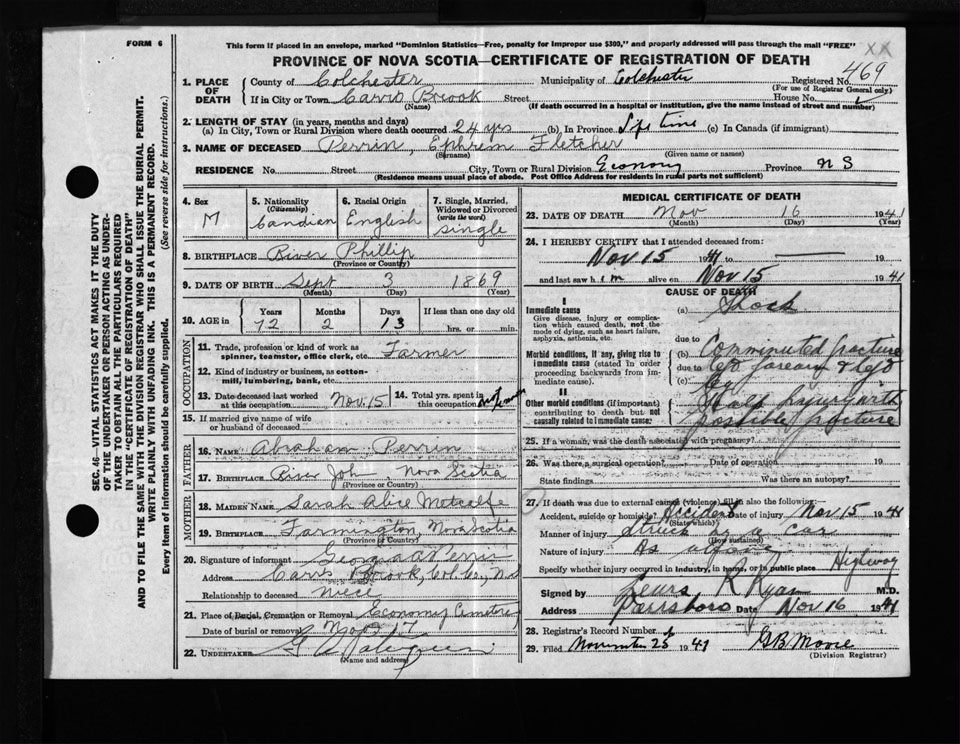 FORM 6
This form if placed in an envelope, marked "Dominion Statistics—Free, penalty for improper use $300," and properly addressed will pass through the mail "FREE"
XX
PROVINCE OF NOVA SCOTIA—CERTIFICATE OF REGISTRATION OF DEATH
SEC. 46—VITAL STATISTICS ACT MAKES IT THE DUTY
OF THE UNDERTAKER OR PERSON ACTING AS UNDER-
TAKER TO OBTAIN ALL THE PARTICULARS REQUIRED
IN THE "CERTIFICATE OF REGISTRATION OF DEATH"
AND TO FILE THE SAME WITH THE DIVISION REGISTRAR WHO SHALL ISSUE THE BURIAL PERMIT.
WRITE PLAINLY WITH UNFADING INK. THIS IS A PERMANENT RECORD.
Every item of information should be carefully supplied. (See reverse side for instructions.)
1. PLACE OF DEATH
County of Colchester Municipality of Colchester Registered No. 469
(For use of Registrar General only)
If in City or Town Carrs Broook Street House No.
(Name) (If death occurred in a hospital or institution, give the name instead of street and number)
2. LENGTH OF STAY (in years, months and days)
(a) In City, Town or Rural Division where death occurred 24 yrs (b) In Province Life time (c) In Canada (if immigrant)
3. NAME OF DECEASED Perrin, Ephrem Fletcher
(Surname) (Given name or names)
RESIDENCE No. Street City, Town or Rural Division Economy Province N S
(Residence means usual place of abode. Post Office Address for residents in rural parts not sufficient)
4. Sex M
5. Nationality (Citizenship) Candian
6. Racial Origin English
7. Single, Married, Widowed or Divorced (write the word) Single
8. BIRTHPLACE River Phillip
(Province or Country)
9. DATE OF BIRTH Sept 3 1869
(Month) (Day) (Year)
10. AGE in Years 72 Months 2 Days 13 If less than one day old hrs. or min.
OCCUPATION
11. Trade, profession or kind of work as spinner, teamster, office clerk, etc. Farmer
12. Kind of industry or business, as cotton-mill, lumbering, bank, etc.
13. Date deceased last worked at this occupation Nov. 15
14. Total yrs. spent in this occupation
15. If married give name of wife or husband of deceased
FATHER
16. NAME Abraham Perrin
17. BIRTHPLACE River John Nova Scotia
(Province or Country)
MOTHER
18. MAIDEN NAME Sarah Alice Metcalfe
19. BIRTHPLACE Farmington, Nova Scotia
(Province or Country)
20. Signature of informant Georgia A Perrin
Address Carrs Broook, Col. Co., N.S
Relationship to deceased niece
21. Place of Burial, Cremation or Removal Economy Cemetery
Date of burial or removal Nov 17
22. UNDERTAKER
(Name and address)
MEDICAL CERTIFICATE OF DEATH
23. DATE OF DEATH Nov 16 1941
(Month) (Day) (Year)
24. I HEREBY CERTIFY that I attended deceased from:
Nov 15 1941 to — 19
and last saw h im alive on Nov 15 1941
CAUSE OF DEATH
I
Immediate cause
Give disease, injury or complication which caused death, not the mode of dying, such as heart failure, asphyxia, asthenia, etc.
(a) Shock
due to
Morbid conditions, if any, giving rise to immediate cause (stated in order proceeding backwards from immediate cause).
(b) Comminuted fracture
due to left forearm & left
(c) leg
II
Other morbid conditions (if important) contributing to death but not causally related to immediate cause.
Scalp injury with
possible fracture
25. If a woman, was the death associated with pregnancy?
26. Was there a surgical operation? Date of operation 19
State findings Was there an autopsy?
27. If death was due to external cause (violence) fill in also the following:—
Accident, suicide or homicide? Accident Date of injury Nov 15 1941
(State which)
Manner of injury Struck by a car
(How sustained)
Nature of injury As above
Specify whether injury occurred in industry, in home, or in public place Highway
Signed by R Ryan M.D.
Address Parrsboro Date Nov 16 1941
28. Registrar's Record Number
29. Filed November 25 1941 G.B. Moore
(Division Registrar)